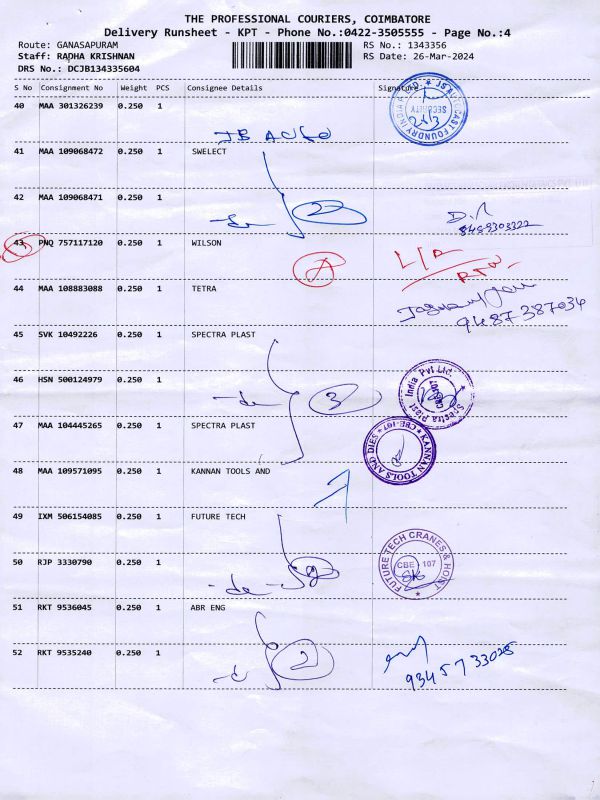 THE PROFESSIONAL COURIERS, COIMBATORE
Delivery Runsheet - KPT - Phone No.:0422-3505555 - Page No.:4
Route: GANASAPURAM
RS No.: 1343356
Staff: RADHA KRISHNAN
RS Date: 26-Mar-2024
DRS No.: DCJB134335604
S No Consignment No Weight PCS Consignee Details Signature
40 MAA 301326239 0.250 1
41 MAA 109068472 0.250 1 SWELECT
42 MAA 109068471 0.250 1
2
43 PNQ 757117120 0.250 1 WILSON
44 MAA 108883088 0.250 1 TETRA
9487387034
45 SVK 10492226 0.250 1 SPECTRA PLAST
46 HSN 500124979 0.250 1
3
Spectra Plast India Pvt Ltd.
47 MAA 104445265 0.250 1 SPECTRA PLAST
KANNAN TOOLS AND DIES * CBE-107 *
48 MAA 109571095 0.250 1 KANNAN TOOLS AND
49 IXM 506154085 0.250 1 FUTURE TECH
50 RJP 3330790 0.250 1
FUTURE TECH CRANES & HOIST
CBE 107
51 RKT 9536045 0.250 1 ABR ENG
52 RKT 9535240 0.250 1
2